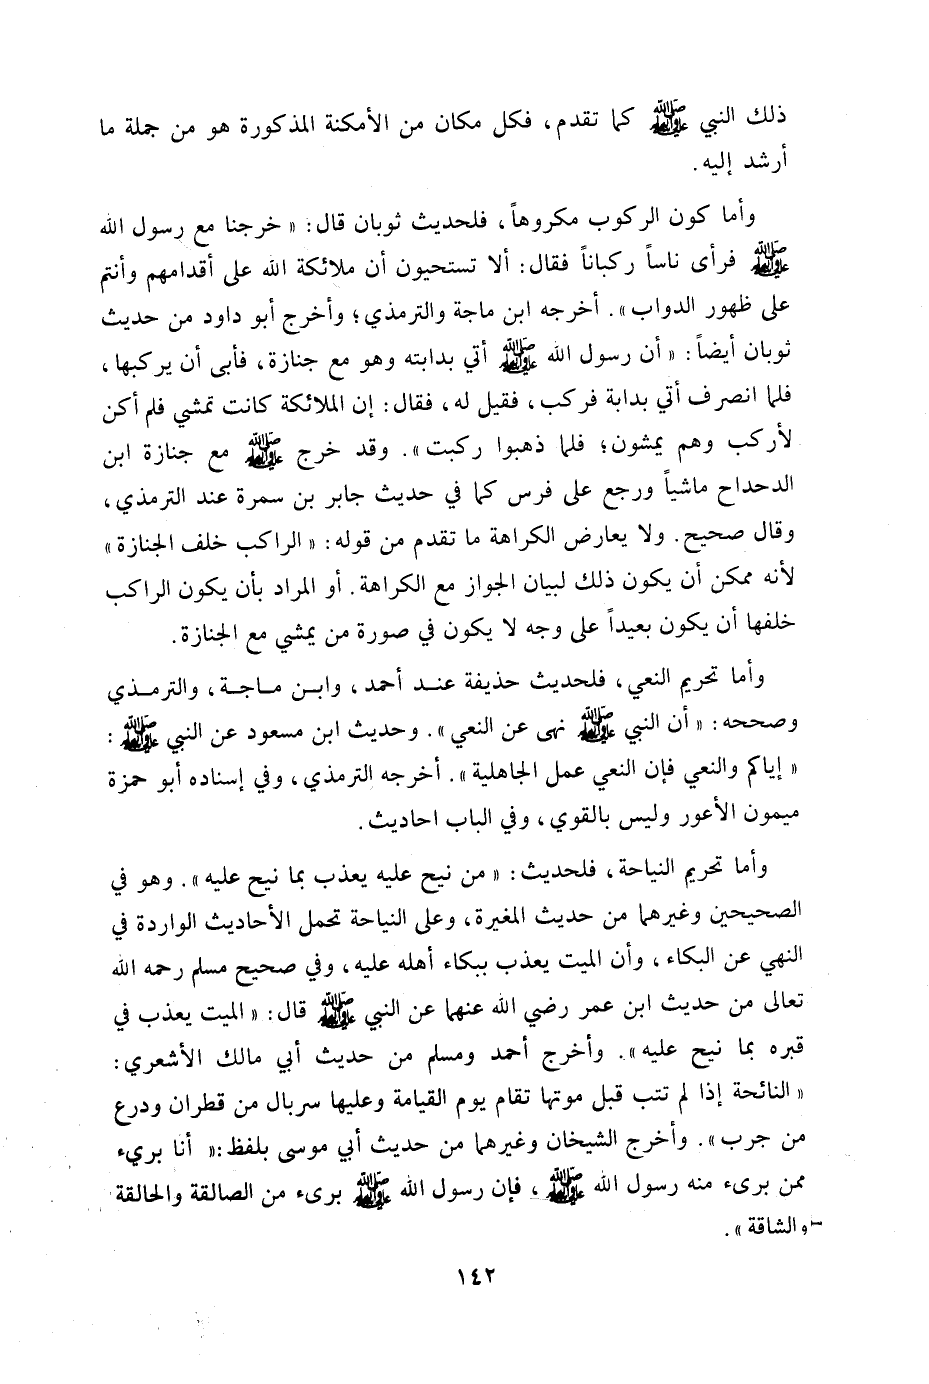 ذلك النبي ﷺ كما تقدم ، فكل مكان من الأمكنة المذكورة هو من جملة ما
أرشد إليه .
وأما كون الركوب مكروهاً ، فلحديث ثوبان قال : « خرجنا مع رسول الله
ﷺ فرأى ناساً ركباناً فقال : ألا تستحيون أن ملائكة الله على أقدامهم وأنتم
على ظهور الدواب » . أخرجه ابن ماجة والترمذي ؛ وأخرج أبو داود من حديث
ثوبان أيضاً : « أن رسول الله ﷺ أتي بدابته وهو مع جنازة ، فأبى أن يركبها ،
فلما انصرف أتي بدابة فركب ، فقيل له ، فقال : إن الملائكة كانت تمشي فلم أكن
لأركب وهم يمشون ؛ فلما ذهبوا ركبت » . وقد خرج ﷺ مع جنازة ابن
الدحداح ماشياً ورجع على فرس كما في حديث جابر بن سمرة عند الترمذي ،
وقال صحيح . ولا يعارض الكراهة ما تقدم من قوله : « الراكب خلف الجنازة »
لأنه ممكن أن يكون ذلك لبيان الجواز مع الكراهة . أو المراد بأن يكون الراكب
خلفها أن يكون بعيداً على وجه لا يكون في صورة من يمشي مع الجنازة .
وأما تحريم النعي ، فلحديث حذيفة عنـد أحمد ، وابـن مـاجـة ، والترمـذي
وصححه : « أن النبي ﷺ نهى عن النعي » . وحديث ابن مسعود عن النبي ﷺ :
« إياكم والنعي فإن النعي عمل الجاهلية » . أخرجه الترمذي ، وفي إسناده أبو حمزة
ميمون الأعور وليس بالقوي ، وفي الباب احاديث .
وأما تحريم النياحة ، فلحديث : « من نيح عليه يعذب بما نيح عليه » . وهو في
الصحيحين وغيرهما من حديث المغيرة ، وعلى النياحة تحمل الأحاديث الواردة في
النهي عن البكاء ، وأن الميت يعذب ببكاء أهله عليه ، وفي صحيح مسلم رحمه الله
تعالى من حديث ابن عمر رضي الله عنهما عن النبي ﷺ قال : « الميت يعذب في
قبره بما نيح عليه » . وأخرج أحمد ومسلم من حديث أبي مالك الأشعري :
« النائحة إذا لم تتب قبل موتها تقام يوم القيامة وعليها سربال من قطران ودرع
من جرب » . وأخرج الشيخان وغيرهما من حديث أبي موسى بلفظ :« أنا بريء
ممن برىء منه رسول الله ﷺ ، فإن رسول الله ﷺ برىء من الصالقة والحالقة
والشاقة » .
١٤٢